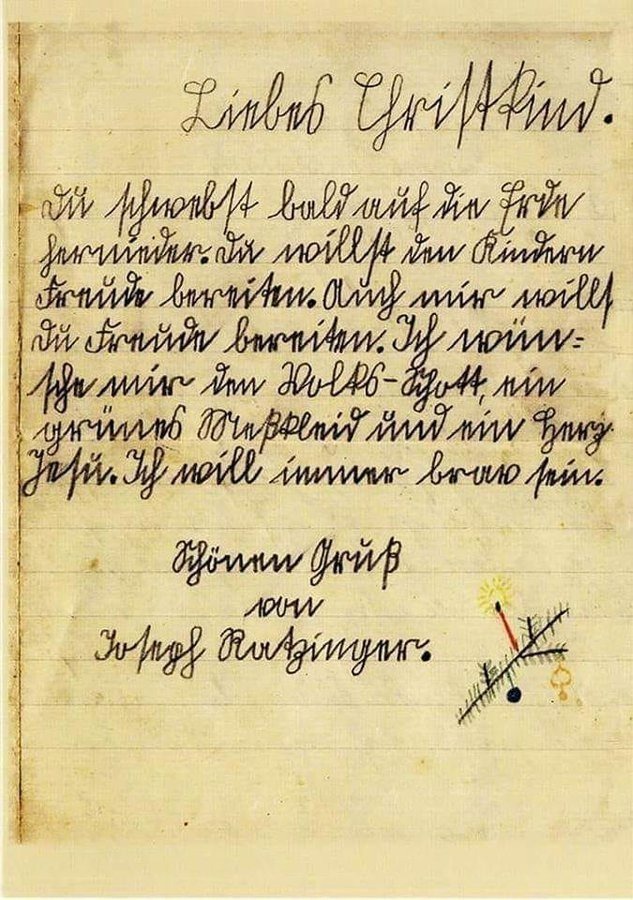 Liebes Christkind.
Du schwebst bald auf die Erde
hernieder. Du willst den Kindern
Freude bereiten. Auch mir willst
du Freude bereiten. Ich wün-
sche mir den Volks-Schott, ein
grünes Meßkleid und ein Herz
Jesu. Ich will immer brav sein.
Schönen Gruß
von
Joseph Ratzinger.